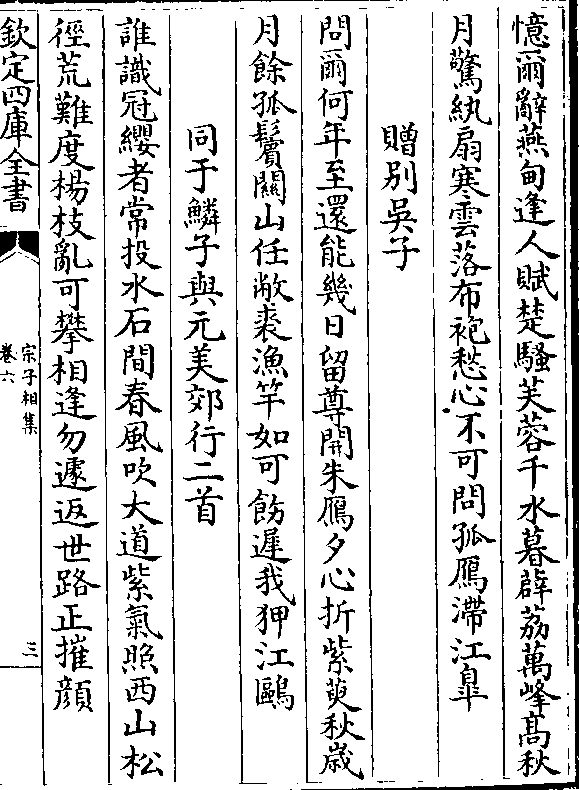 憶爾辭燕甸逢人賦楚騷芙蓉千水暮薜荔萬峰髙秋
月驚紈扇寒雲落布袍愁心不可問孤鴈滯江臯
贈別吳子
問爾何年至還能幾日留尊開朱鴈夕心折紫萸秋歳
月餘孤鬢關山任敝裘漁竿如可飭遲我狎江鷗
同于鱗子與元美郊行二首
誰識冠纓者常投水石間春風吹大道紫氣照西山松
徑荒難度楊枝亂可攀相逢勿遽返世路正摧顔
欽定四庫全書
宗子相集
卷六
三